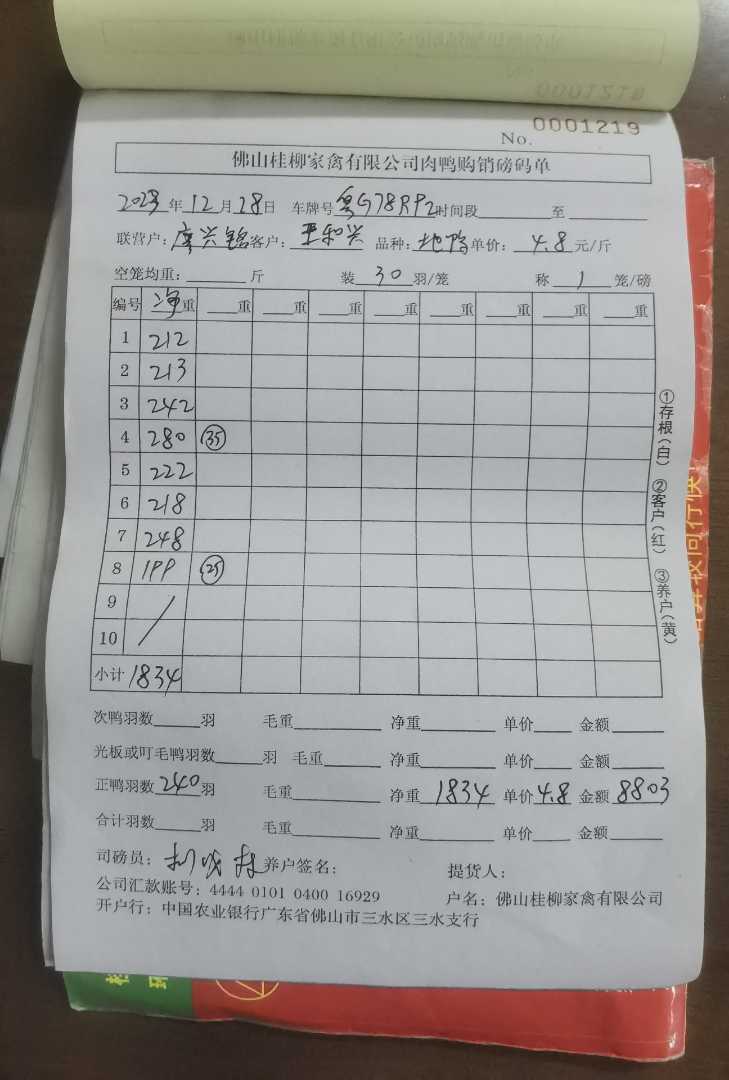 0001218
No. 0001219
佛山桂柳家禽有限公司肉鸭购销磅码单
2023年12月28日 车牌号粤G78RP2时间段______至______
联营户:廖兴铭客户:王和兴 品种:地鸭单价:4.8元/斤
空笼均重:______斤 装30羽/笼 称1笼/磅
编号 净重 ___重 ___重 ___重 ___重 ___重 ___重 ___重 ___重
1 212
2 213
3 242
4 280 35
5 222
6 218
7 248
8 199 25
9
10
小计 1834
①存根(白) ②客户(红) ③养户(黄)
次鸭羽数_____羽 毛重______ 净重______ 单价____ 金额____
光板或叮毛鸭羽数_____羽 毛重______ 净重______ 单价____ 金额____
正鸭羽数240羽 毛重______ 净重1834 单价4.8 金额8803
合计羽数_____羽 毛重______ 净重______ 单价____ 金额____
司磅员: 养户签名: 提货人:
公司汇款账号:4444 0101 0400 16929 户名:佛山桂柳家禽有限公司
开户行:中国农业银行广东省佛山市三水区三水支行